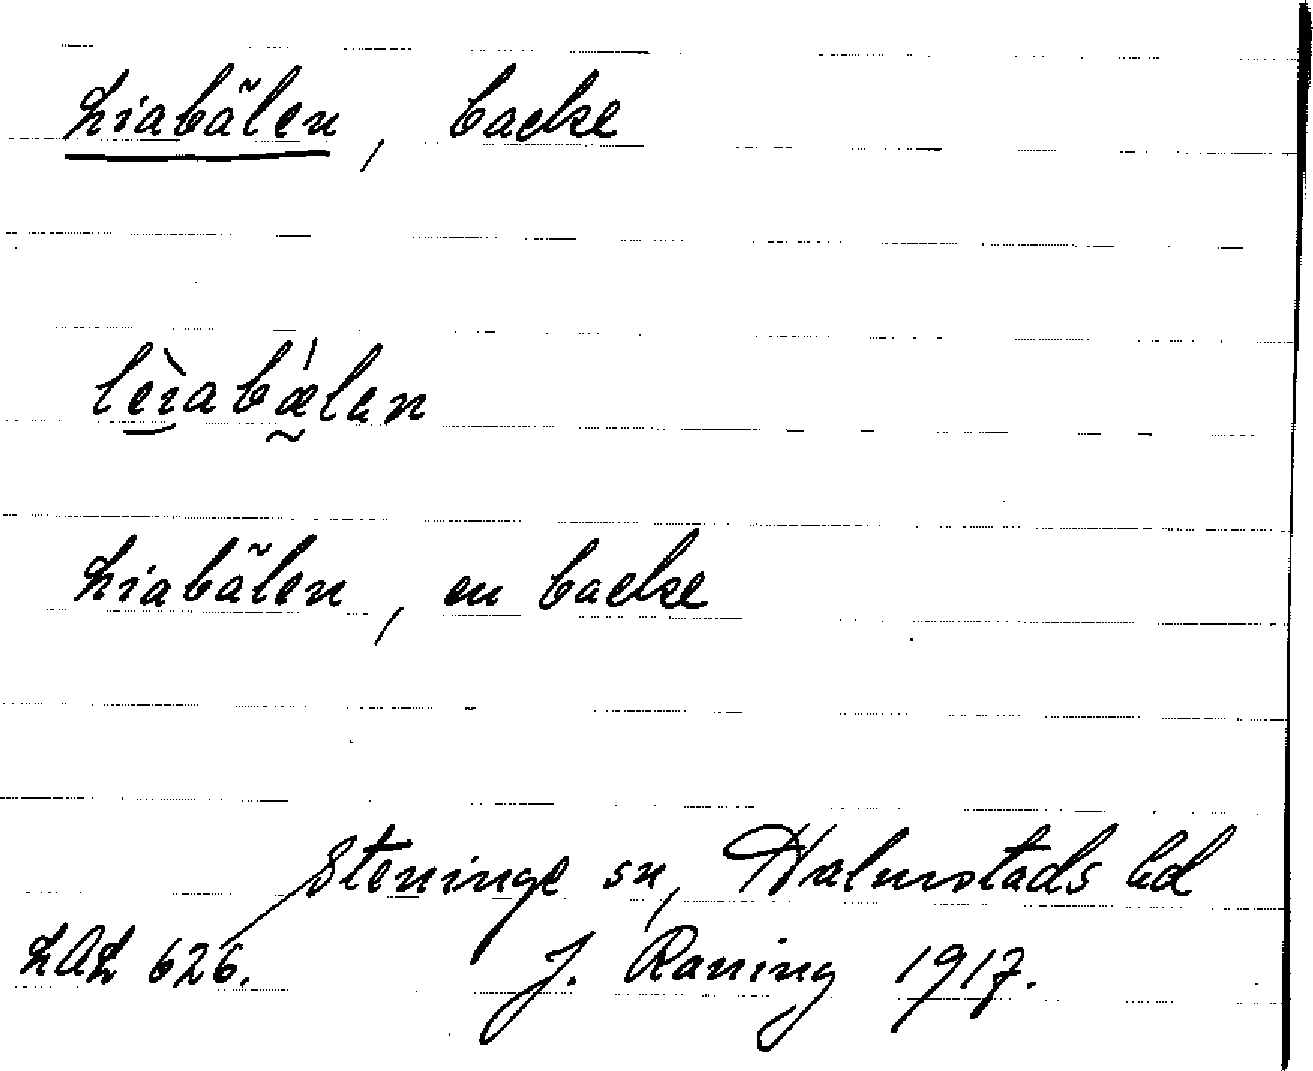 Liabälen, backe
lèiabǽlen
Liabälen, en backe
Steninge sn, Halmstads hd
LAL 626. J. Raning 1917.